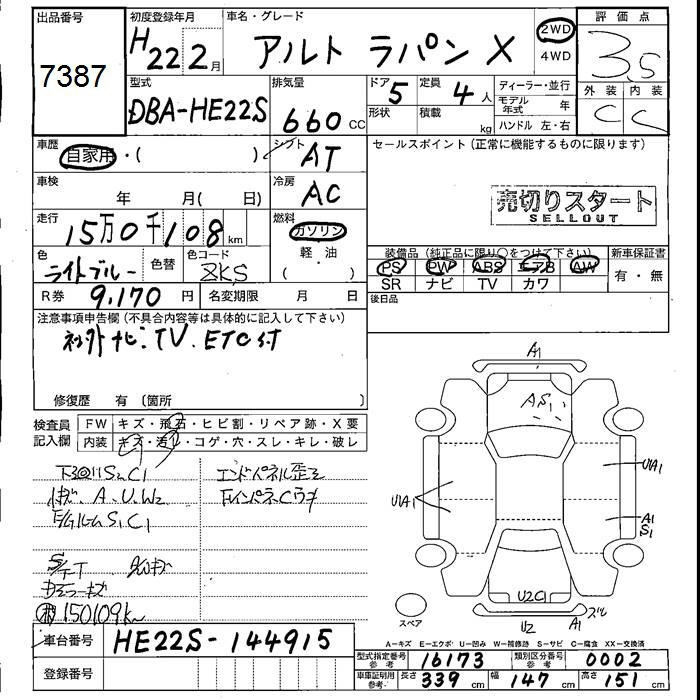 出品番号
7387
初度登録年月
H22 2月
車名・グレード
アルト ラパン X
2WD
4WD
評価点
3.5
外装 内装
C C
型式
DBA-HE22S
排気量
660 cc
ドア 5
形状
定員 4人
積載 kg
ディーラー・並行
モデル年式 年
ハンドル 左・右
車歴
自家用・( )
シフト
AT
セールスポイント (正常に機能するものに限ります)
売切りスタート
SELLOUT
車検
年 月( 日)
冷房
AC
走行
15万0千108km
燃料
ガソリン
軽油
( )
色
ライトブルー
色替
色コード
ZKS
装備品 (純正品に限り○をつけて下さい)
PS PW ABS エアB AW
SR ナビ TV カワ
新車保証書
有・無
R券 9,170円
名変期限 月 日
後日品
注意事項申告欄 (不具合内容等は具体的に記入して下さい)
ナビ.TV.ETC付
修復歴 有 〔箇所 〕
検査員
記入欄
FW キズ・飛石・ヒビ割・リペア跡・X要
内装 キズ・汚レ・コゲ・穴・スレ・キレ・破レ
S1C1
A.U.W2
S1C1
エンドパネル歪み
150109km
A1
A S1
U1A1
U1A1
A1
S1
U2C1
U2
A1
スペア
A=キズ E=エクボ U=凹み W=補修跡 S=サビ C=腐食 XX=交換済
車台番号 HE22S-144915
型式指定番号 参考 16173
類別区分番号 参考 0002
登録番号
車庫証明用 参考 長さ 339 cm 幅 147 cm 高さ 151 cm